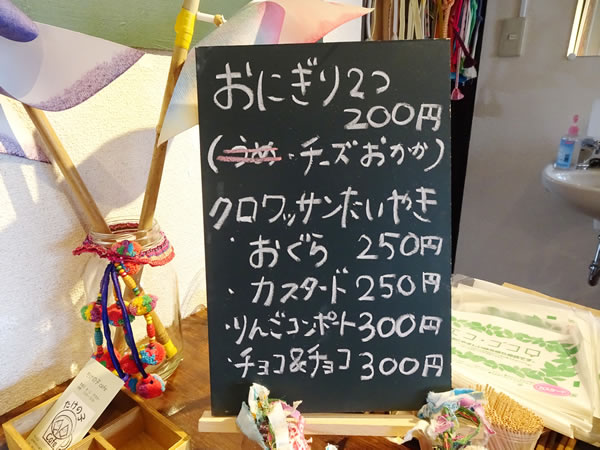 おにぎり2つ
200円
(うめ・チーズおかか)
クロワッサンたいやき
・おぐら 250円
・カスタード 250円
・りんごコンポート 300円
・チョコ&チョコ 300円
たけの子
Cafe
コ・ココロ